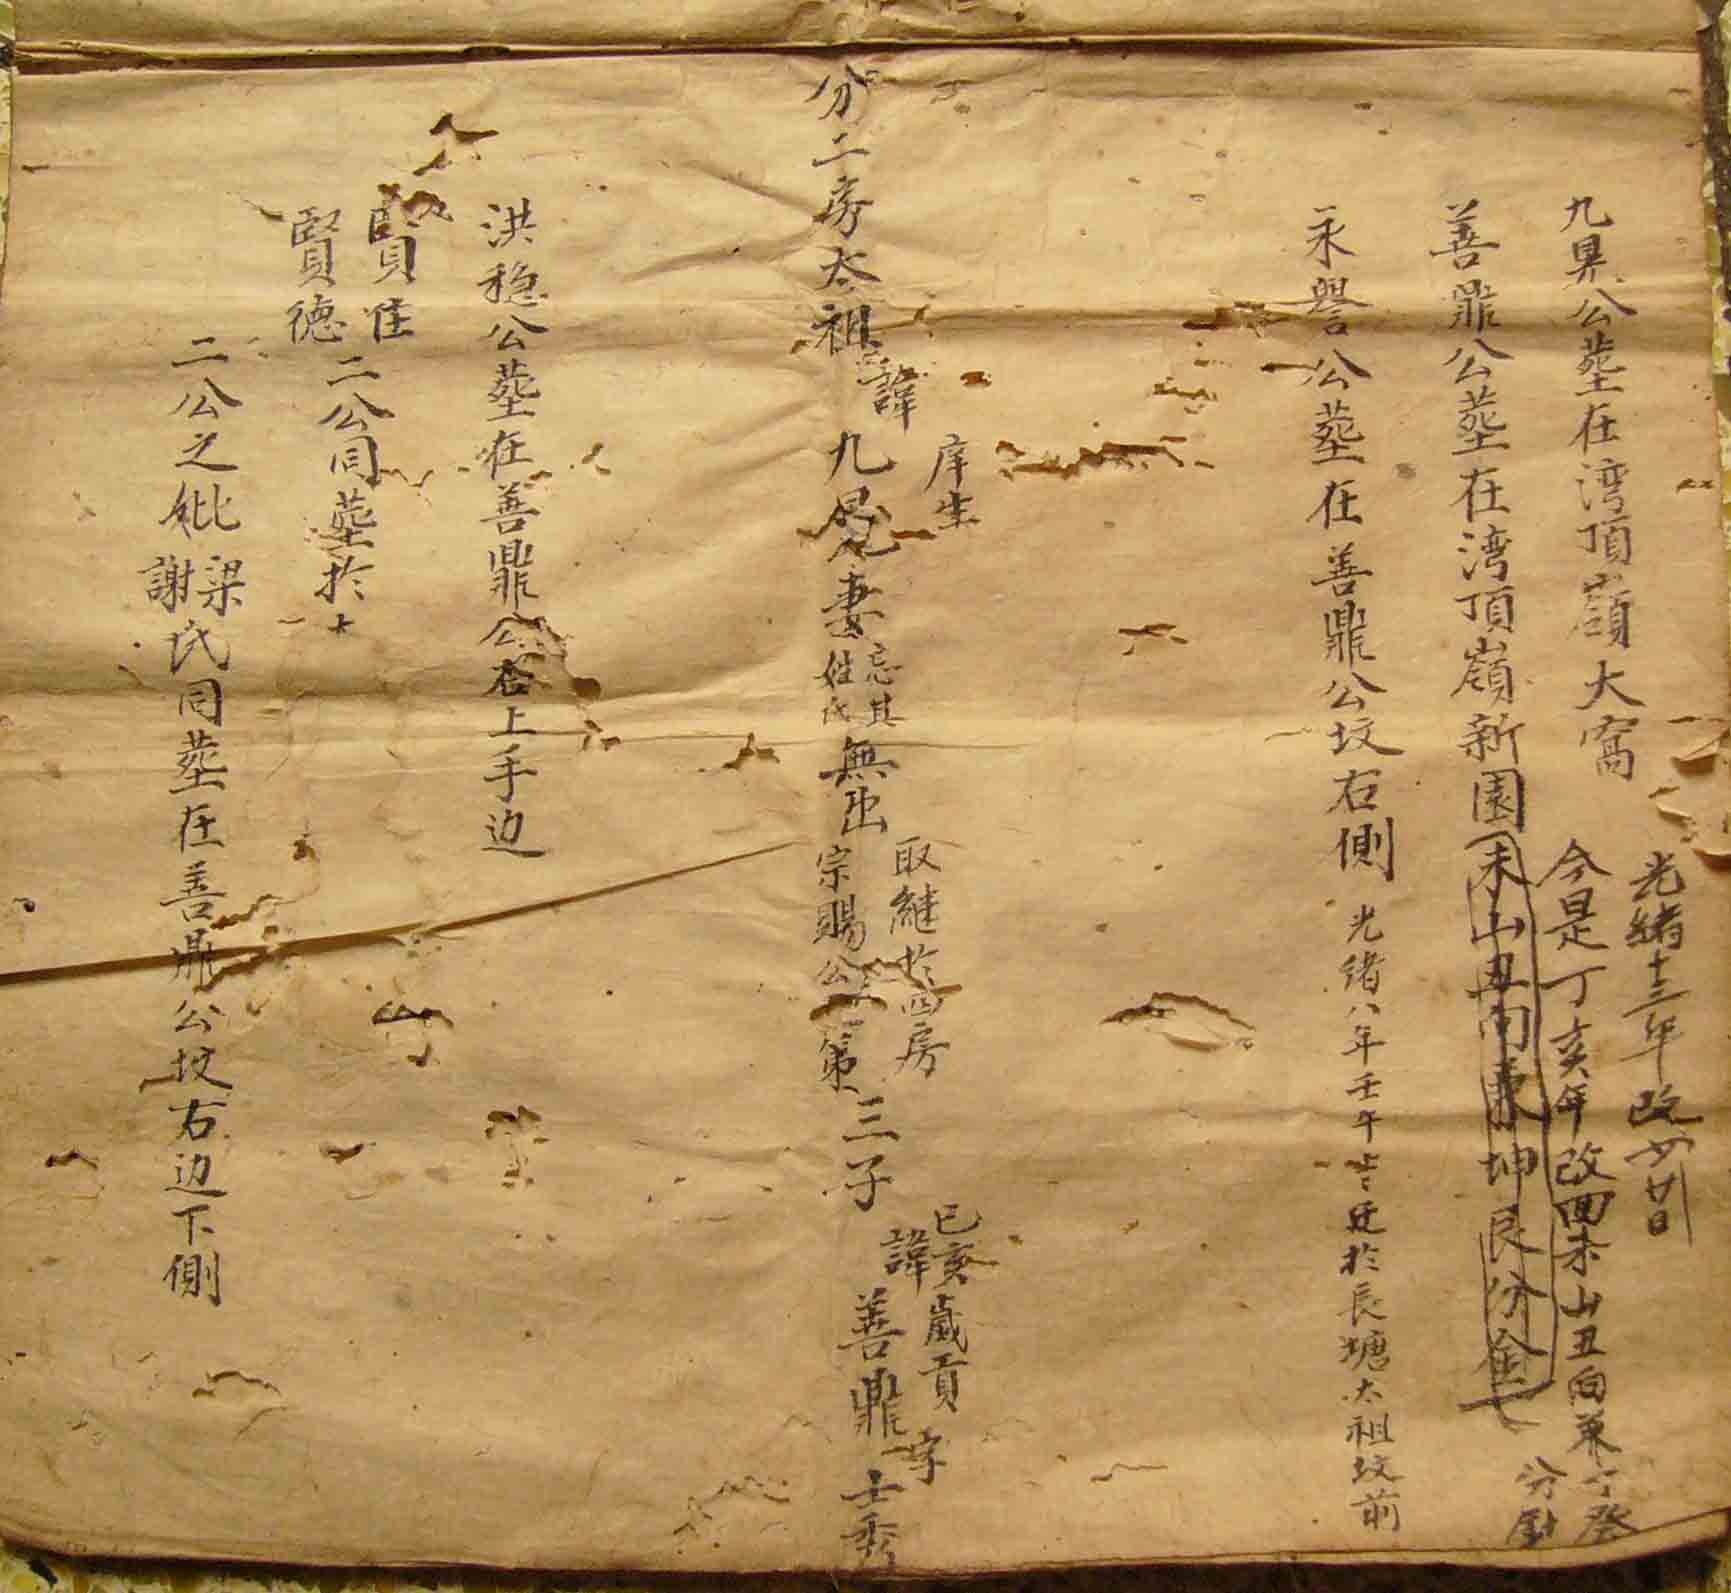 九公塟在湾頂嶺大窩
光緒十三年改廿日
今是丁亥年改回未山丑向兼丁癸
分金
善鼎公塟在湾頂嶺新園未山丑向兼坤艮分金
永譽公塟在善鼎公坟右側
光緒八年壬午迁於長塘太祖坟前
分二房太祖
諱
庠生
九妻
忘其
姓氏
無出
取継於四房
宗賜公第
三子
己亥歲貢
諱
善鼎
字
士秀
洪稳公塟在善鼎公右上手边
賢
賢德
二公同塟於
二公之妣
梁
謝
氏同塟在善鼎公坟右边下側